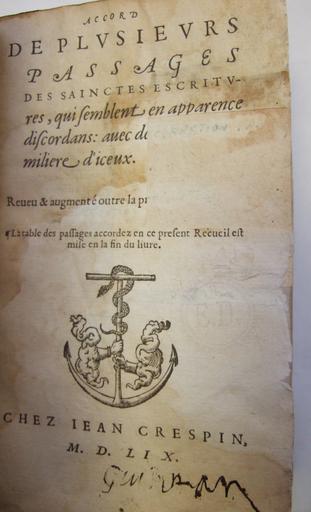 ACCORD
DE PLVSIEVRS
PASSAGES
DES SAINCTES ESCRITV-
res, qui semblent en apparence
discordans: auec
miliere d'iceux.
Reueu & augmenté outre la
La table des passages accordez en ce present Recueil est
mise en la fin du liure.
CHEZ IEAN CRESPIN,
M. D. LIX.